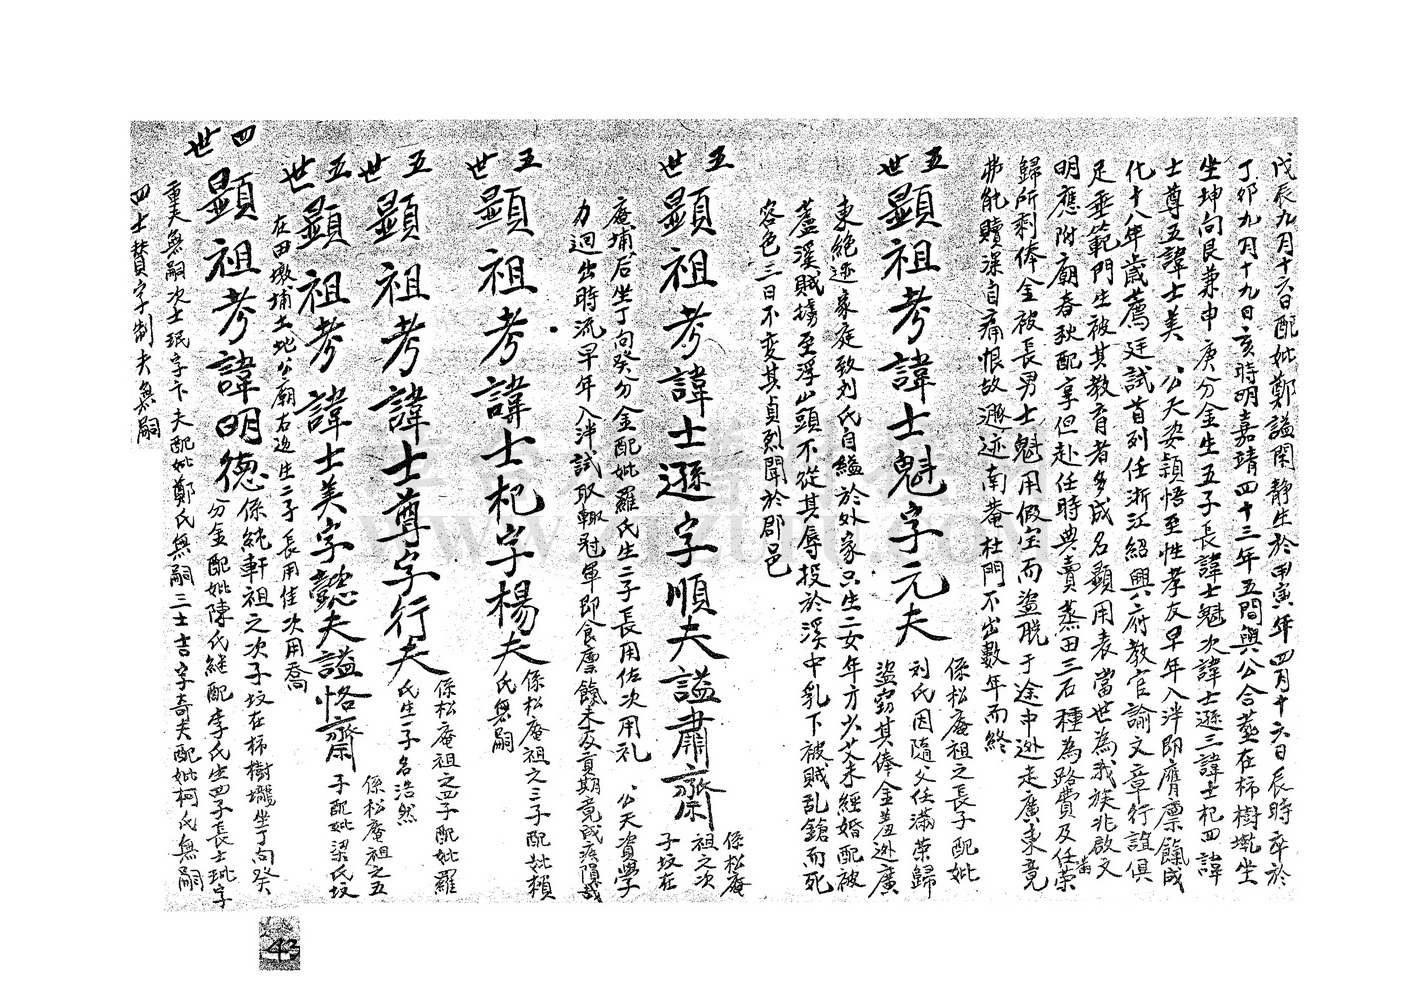 戊辰九月十六日配妣鄭謚閑靜生於甲寅年四月十六日辰時卒於
丁卯九月十九日亥時明嘉靖四十三年五間與公合塟在柿樹壠坐
坐坤向艮兼申庚分金生五子長諱士魁次諱士遜三諱士杞四諱
士尊五諱士美 公天姿頴悟至性孝友早年入泮即膺廪餼成
化十八年歲薦廷試首列任浙江紹興府教官諭文章行誼俱
足垂範門生被其教育者多成名顯用表當世為我族兆啟文
明應附廟春秋配享但赴任時典賣蒸田三石種為路費及任荣
歸所剩俸金被長男士魁用假宝而盜脱于途中逊走廣東竟
弗能贖深自痛恨故遯迹南菴杜門不出數年而終
五世
顯祖考諱士魁字元夫
係松庵祖之長子配妣
刘氏因隨父任滿荣歸
盜窃其俸金羞逊廣
東絶迹家庭致刘氏自縊於外家只生二女年方少艾未經婚配被
蘆溪賊擄至浮山頭不從其辱投於溪中乳下被賊乱鎗而死
容色三日不变其貞烈聞於郡邑
五世
顯祖考諱士遜字順夫謚肅齋
係松庵
祖之次
子坟在
庵埔后坐丁向癸分金配妣羅氏生二子長用佐次用礼 公天資學
力迥出時流早年入泮試取輙冠軍即食廪餼未及貢期竟
五世
顯祖考諱士杞字楊夫
係松庵祖之三子配妣賴
氏無嗣
五世
顯祖考諱士尊字行夫
係松庵祖之四子配妣羅
氏生一子名浩然
五世
顯祖考諱士美字懿夫謚恪齋
係松庵祖之五
子配妣梁氏坟
在田墩埔土地公廟右边生二子長用佳次用喬
四世
顯祖考諱明德
係純軒祖之次子坟在柿樹壠坐丁向癸
分金配妣陳氏継配李氏生四子長士玭字
重夫無嗣次士珉字卞夫配妣鄭氏無嗣三士吉字奇夫配妣柯氏無嗣
四士賛字制夫無嗣
43
www.zizupu.com